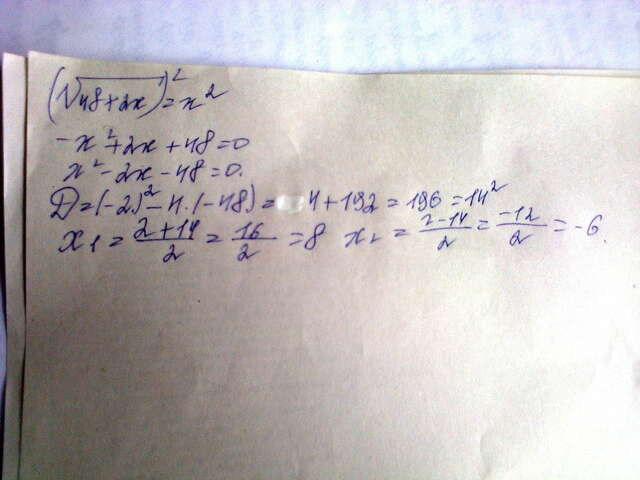 (√48+2x)²=x²
-x²+2x+48=0
x²-2x-48=0.
D=(-2)²-4·(-48)= 4+192=196=14²
x₁ = (2+14)/2 = 16/2 =8 x₂ = (2-14)/2 = (-12)/2 = -6.